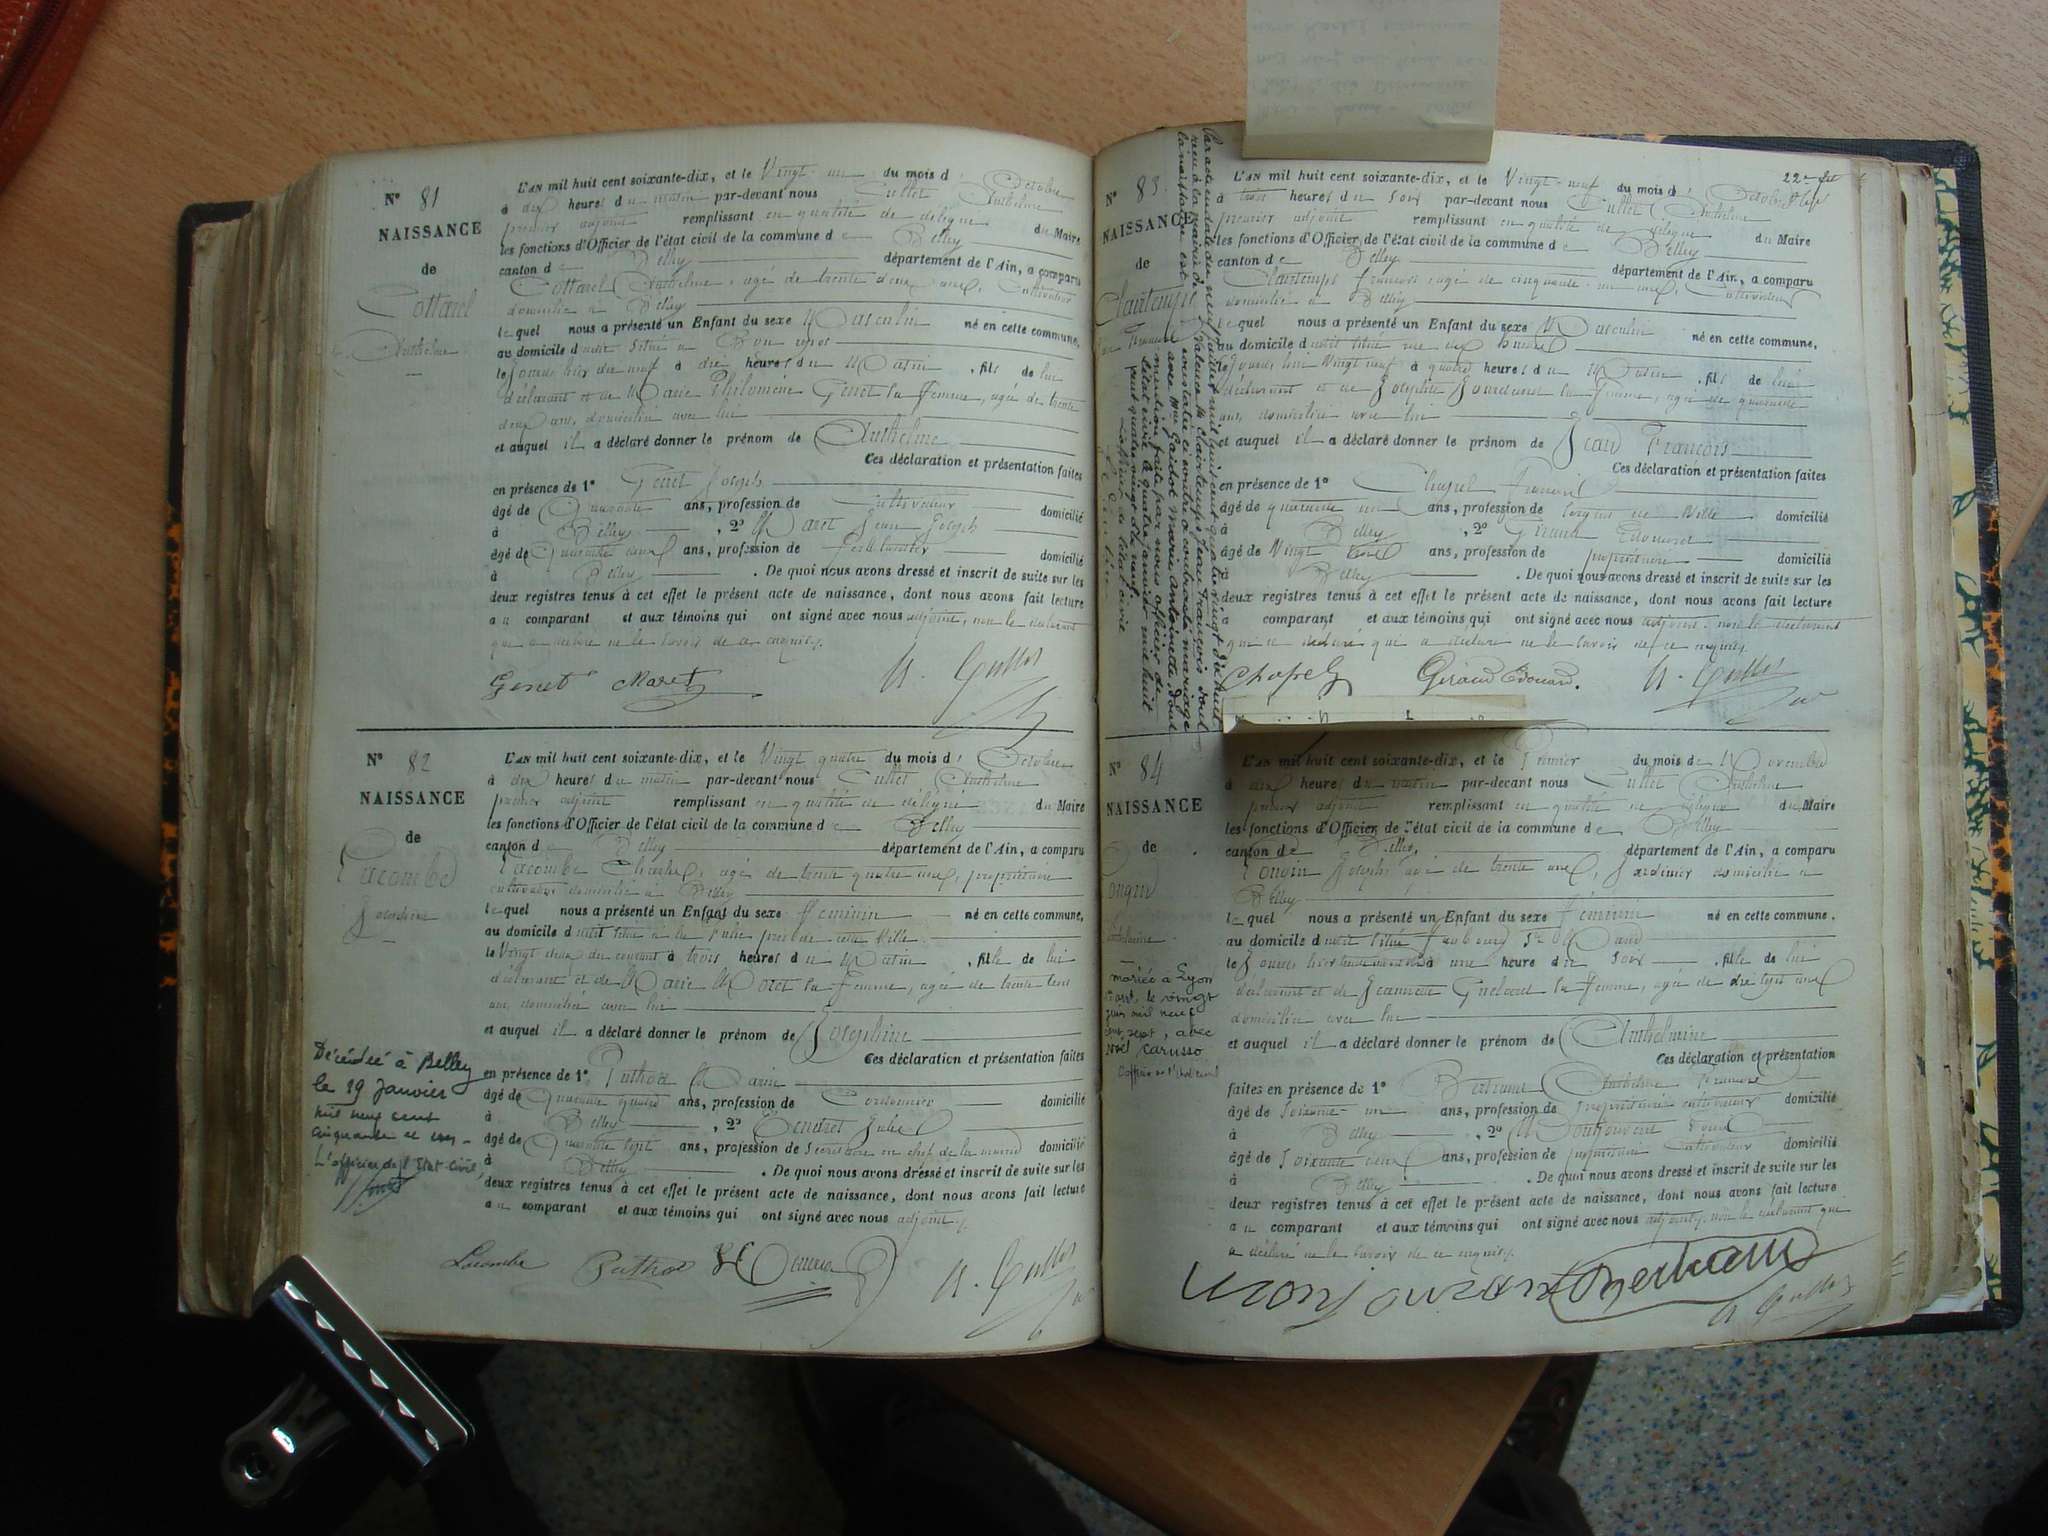 N° 81
NAISSANCE
de
Cottarel
Anthelme
L'AN mil huit cent soixante-dix, et le Vingt-un du mois d' Octobre
à dix heures du matin par-devant nous Cullet Anthelme
premier adjoint remplissant en qualité de délégué du Maire
les fonctions d'Officier de l'état civil de la commune de Belley
canton de Belley département de l'Ain, a comparu
Cottarel Anthelme, agé de trente deux ans, Cultivateur
domicilié à Belley
lequel nous a présenté un Enfant du sexe Masculin né en cette commune,
au domicile d situé à
le jour d'hier dix neuf à dix heures du Matin, fils de lui
déclarant et de Marie Philomène Genet sa femme, agée de trente
deux ans, domiciliée avec lui
et auquel il a déclaré donner le prénom de Anthelme
Ces déclaration et présentation faites
en présence de 1° Genet Joseph
âgé de Quarante ans, profession de Cultivateur domicilié
à Belley, 2° Maret Jean Joseph
âgé de Quarante deux ans, profession de Ferblantier domicilié
à Belley. De quoi nous avons dressé et inscrit de suite sur les
deux registres tenus à cet effet le présent acte de naissance, dont nous avons fait lecture
au comparant et aux témoins qui ont signé avec nous adjoint, non le déclarant
qui a déclaré ne le savoir de ce enquis.
Genet Maret A. Cullet
N° 82
NAISSANCE
de
Lacombe
Joséphine
L'AN mil huit cent soixante-dix, et le Vingt quatre du mois d' Octobre
à dix heures du matin par-devant nous Cullet Anthelme
premier adjoint remplissant en qualité de délégué du Maire
les fonctions d'Officier de l'état civil de la commune de Belley
canton de Belley département de l'Ain, a comparu
Lacombe Charles, agé de trente quatre ans, propriétaire
cultivateur domicilié à Belley
lequel nous a présenté un Enfant du sexe féminin né en cette commune,
au domicile d situé à la près de cette Ville
le Vingt deux du courant à trois heures du Matin, fille de lui
déclarant et de Marie Moret sa femme, agée de trente
ans, domiciliée avec lui
et auquel il a déclaré donner le prénom de Joséphine
Ces déclaration et présentation faites
en présence de 1° Puthod Marin
âgé de Quarante quatre ans, profession de Cordonnier domicilié
à Belley, 2° Tendret Jules
âgé de Quarante sept ans, profession de Secrétaire en chef de la mairie domicilié
à Belley. De quoi nous avons dressé et inscrit de suite sur les
deux registres tenus à cet effet le présent acte de naissance, dont nous avons fait lecture
au comparant et aux témoins qui ont signé avec nous adjoint.
Décédée à Belley
le 19 Janvier
mil neuf cent
cinquante et un
L'officier de l'Etat-Civil,
Lacombe Puthod A. Cullet
N° 83
NAISSANCE
de
Clairtemps
Jean François
22e
L'AN mil huit cent soixante-dix, et le Vingt-neuf du mois d' Octobre
à trois heures du soir par-devant nous Cullet Anthelme
premier adjoint remplissant en qualité de délégué du Maire
les fonctions d'Officier de l'état civil de la commune de Belley
canton de Belley département de l'Ain, a comparu
Clairtemps François agé de cinquante-un ans, Cultivateur
domicilié à Belley
lequel nous a présenté un Enfant du sexe Masculin né en cette commune,
au domicile d situé rue
le jour Vingt neuf à quatre heures du Matin, fils de lui
déclarant et de Josephte sa femme, agée de quarante
ans, domiciliée avec lui
et auquel il a déclaré donner le prénom de Jean François
Ces déclaration et présentation faites
en présence de 1° Chapel François
âgé de quarante un ans, profession de Sergent de Ville domicilié
à Belley, 2° Giraud Edouard
âgé de Vingt trois ans, profession de propriétaire domicilié
à Belley. De quoi nous avons dressé et inscrit de suite sur les
deux registres tenus à cet effet le présent acte de naissance, dont nous avons fait lecture
a comparant et aux témoins qui ont signé avec nous adjoint, non le déclarant
qui a déclaré ne le savoir de ce enquis.
Chapel Giraud Edouard. A. Cullet
Par acte du
reçu à la mairie de Valence Mr Clairtemps Jean François dont
la naissance est constatée ci contre a contracté mariage
avec Mlle Gaidot Marie Antoinette, dont
mention faite par nous officier de
l'état civil le quatre janvier mil huit
cent quatre vingt dix neuf.
L'officier de l'état civil
N° 84
NAISSANCE
de
Anthelmine
L'AN mil huit cent soixante-dix, et le Premier du mois de Novembre
à dix heures du matin par-devant nous Cullet Anthelme
premier adjoint remplissant en qualité de délégué du Maire
les fonctions d'Officier de l'état civil de la commune de Belley
canton de Belley département de l'Ain, a comparu
Joseph agé de trente ans, Jardinier domicilié à
Belley
lequel nous a présenté un Enfant du sexe féminin né en cette commune.
au domicile d situé faubourg St
le jour d'hier à une heure du soir, fille de lui
déclarant et de Jeannette sa femme, agée de
domiciliée avec lui
et auquel il a déclaré donner le prénom de Anthelmine
Ces déclaration et présentation
faites en présence de 1° Bertrand Anthelme
âgé de soixante-un ans, profession de propriétaire cultivateur domicilié
à Belley, 2°
âgé de soixante deux ans, profession de propriétaire cultivateur domicilié
à Belley. De quoi nous avons dressé et inscrit de suite sur les
deux registres tenus à cet effet le présent acte de naissance, dont nous avons fait lecture
au comparant et aux témoins qui ont signé avec nous adjoint, non le déclarant qui
a déclaré ne le savoir de ce enquis.
mariée à Lyon
le vingt
juin mil neuf
cent sept, avec
Noël Carusso
L'officier de l'état civil
Bertrand A. Cullet